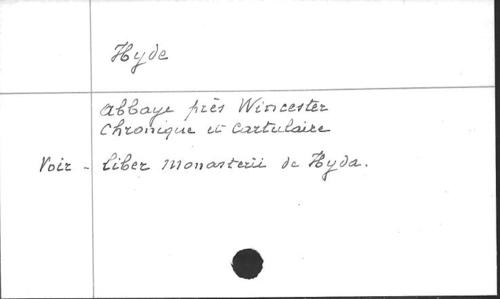 Hyde
Abbaye près Wincester
Chronique et Cartulaire
Voir - Liber Monasterii de Hyda.